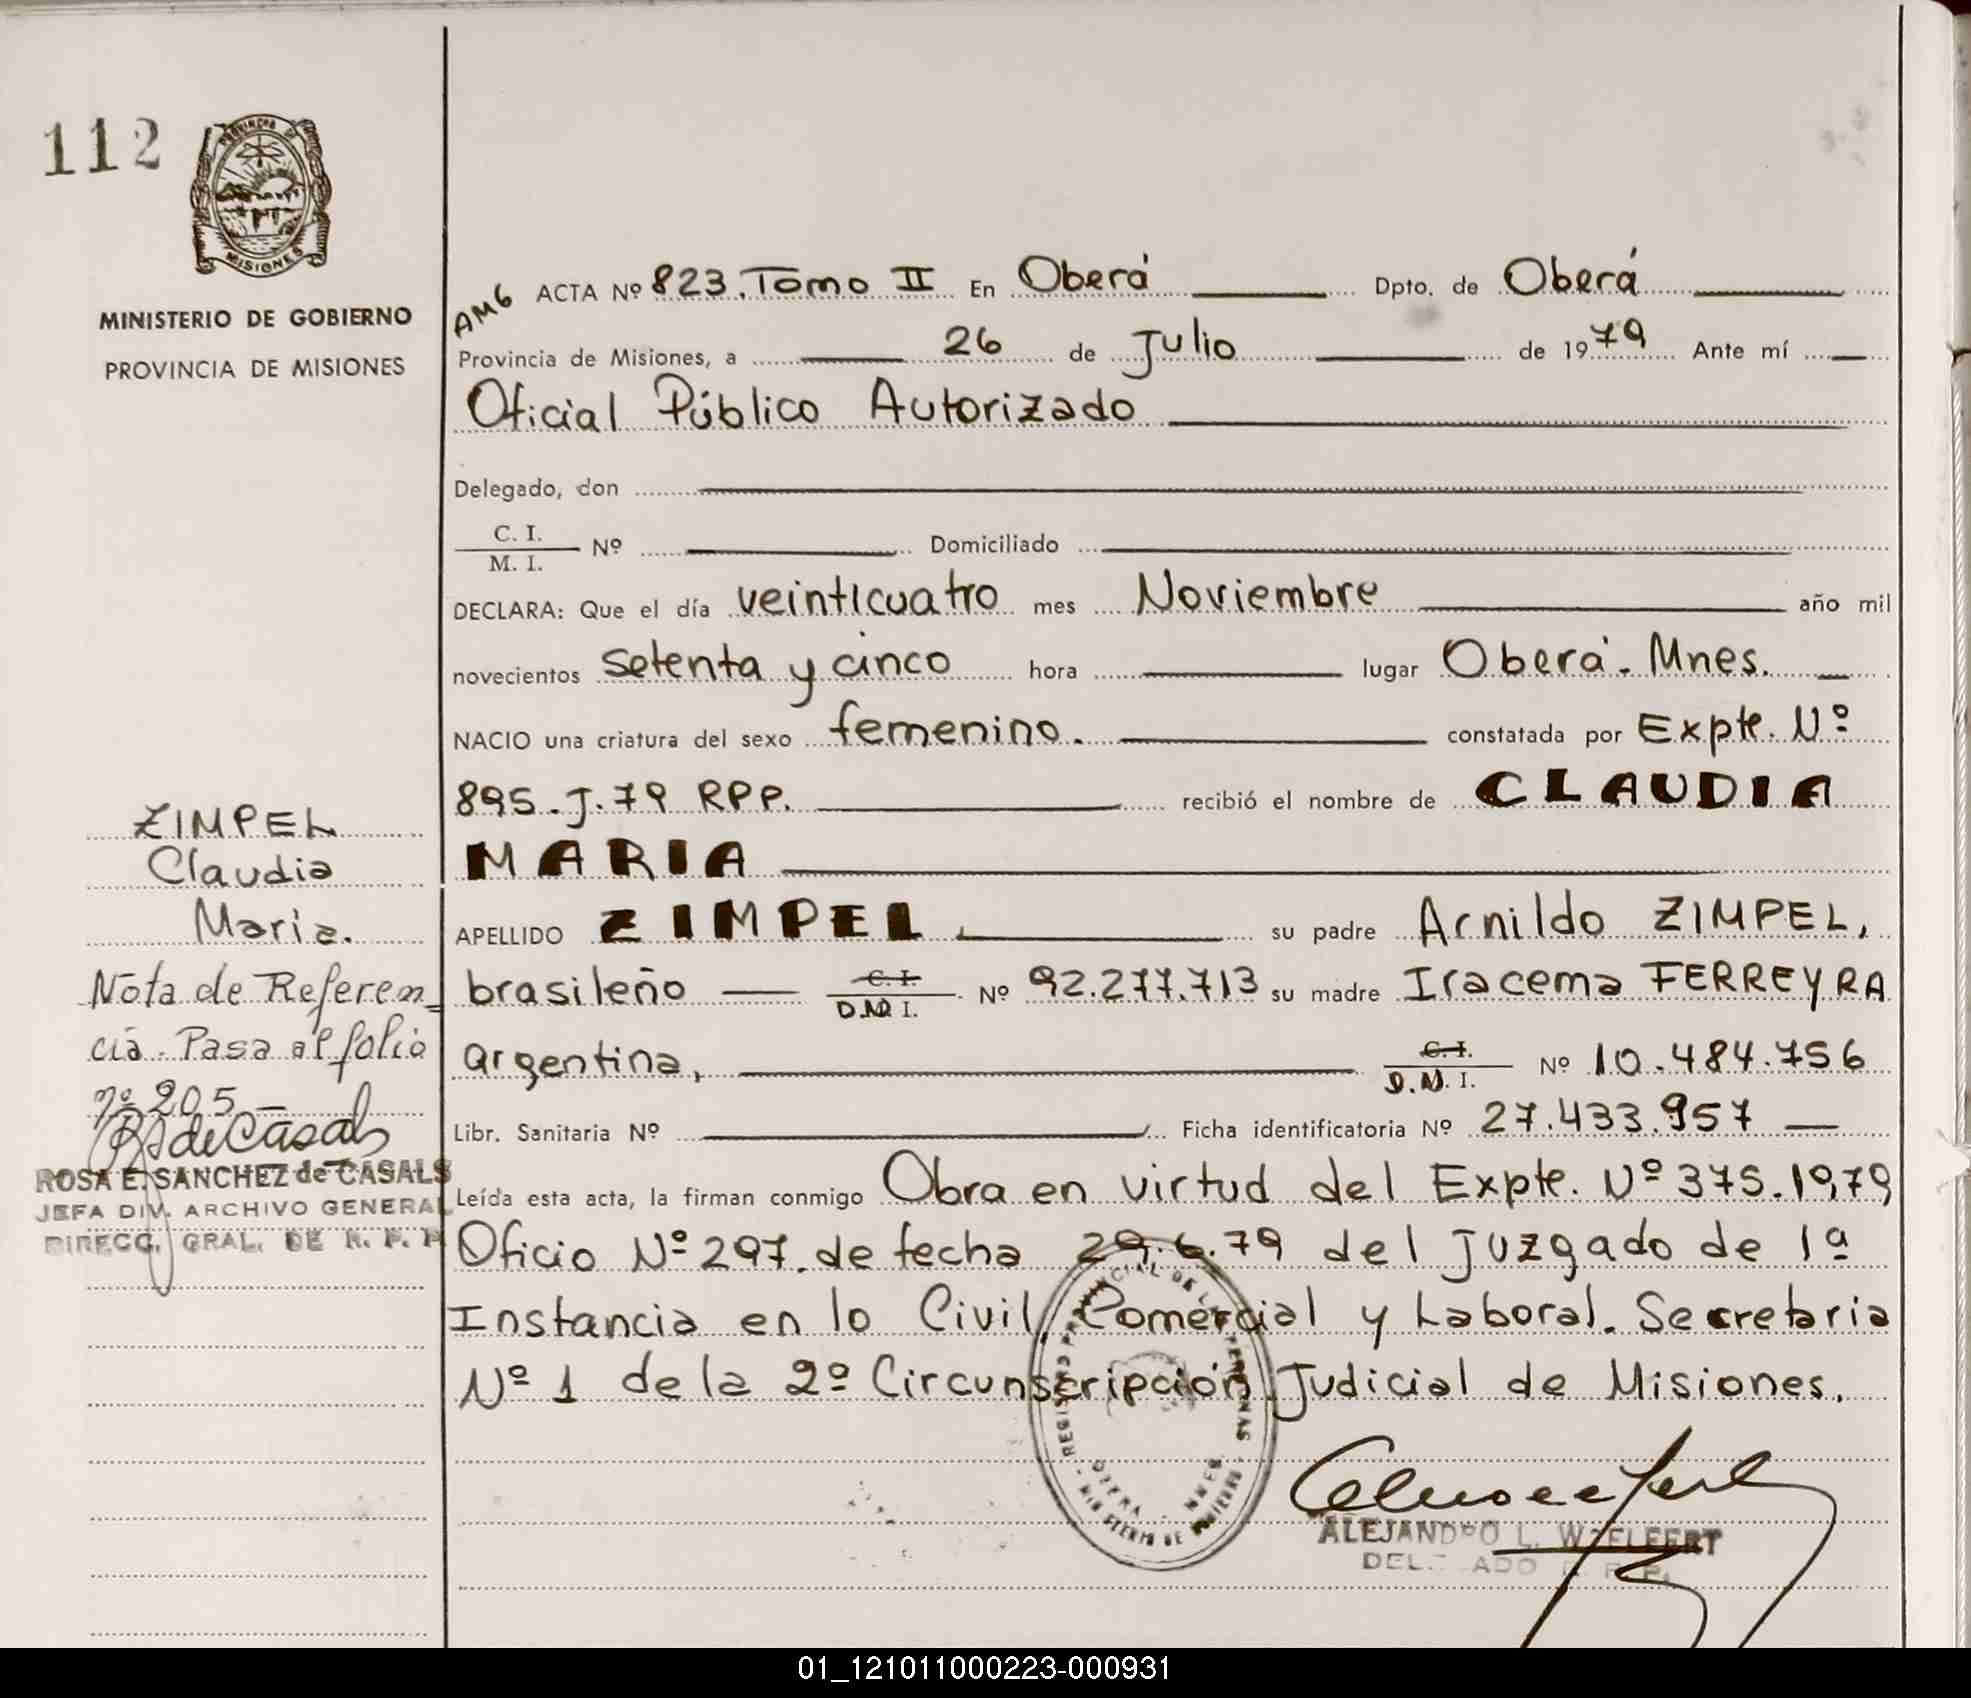 112
PROVINCIA DE
MISIONES
MINISTERIO DE GOBIERNO
PROVINCIA DE MISIONES
AM6
ACTA Nº 823. Tomo II En Oberá Dpto. de Oberá
Provincia de Misiones, a 26 de Julio de 1979 Ante mí
Oficial Público Autorizado
Delegado, don
C. I.
M. I. Nº Domiciliado
DECLARA: Que el día veinticuatro mes Noviembre año mil
novecientos setenta y cinco hora lugar Oberá. Mnes.
NACIO una criatura del sexo femenino. constatada por Expte. Nº
895. J. 79 RPP. recibió el nombre de CLAUDIA
MARIA
APELLIDO ZIMPEL su padre Arnildo ZIMPEL,
brasileño C. I. D.N. I. Nº 92.277.713 su madre Iracema FERREYRA
argentina, C. I. D.N. I. Nº 10.484.756
Libr. Sanitaria Nº Ficha identificatoria Nº 27.433.957
Leída esta acta, la firman conmigo Obra en virtud del Expte. Nº 375.1979
Oficio Nº 297. de fecha 29.6.79 del Juzgado de 1ª
Instancia en lo Civil, Comercial y Laboral. Secretaria
Nº 1 de la 2º Circunscripción Judicial de Misiones.
ZIMPEL
Claudia
Maria.
Nota de Referen_
cia. Pasa al folio
nº 205 –
RS de Casals
ROSA E. SANCHEZ de CASALS
JEFA DIV. ARCHIVO GENERAL
DIRECC. GRAL. DE R. P. P.
REGISTRO PROVINCIAL DE LAS PERSONAS
OBERA - MNES.
MINISTERIO DE GOBIERNO
ALEJANDRO L. WOELFERT
DELEGADO R. P. P.
01_121011000223-000931